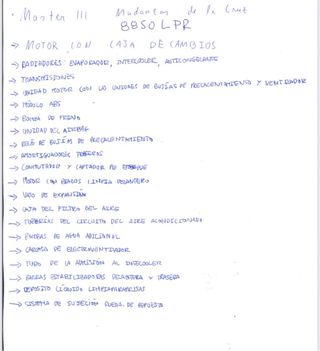 - Master III Mudanzas de la Cruz
8850 LPR
→ MOTOR CON CAJA DE CAMBIOS
→ RADIADORES: EVAPORADOR, INTERCOOLER, ANTICONGELANTE
→ TRANSMISIONES
→ UNIDAD MOTOR CON LA UNIDAD DE BUJIAS DE PRECALENTAMIENTO Y VENTILADOR
→ MÓDULO ABS
→ BOMBA DE FRENO
→ UNIDAD DEL AIRBAG
→ RELÉ DE BUJÍAS DE PRECALENTAMIENTO
→ AMORTIGUADORES TRASEROS
→ CONMUTADOR Y CAPTADOR DE EMBRAGUE
→ MOTOR CON BRAZOS LIMPIA DELANTERO
→ VASO DE EXPANSIÓN
→ CAJA DEL FILTRO DEL AIRE
→ TUBERÍAS DEL CIRCUITO DEL AIRE ACONDICIONADO
→ BOMBA DE AGUA ADICIONAL
→ CARCASA DE ELECTROVENTILADOR
→ TUBO DE LA ADMISIÓN AL INTECOOLER
→ BARRAS ESTABILIZADORAS DELANTERA Y TRASERA
→ DEPÓSITO LÍQUIDO LIMPIAPARABRISAS
→ SISTEMA DE SUJECIÓN RUEDA DE REPUESTO